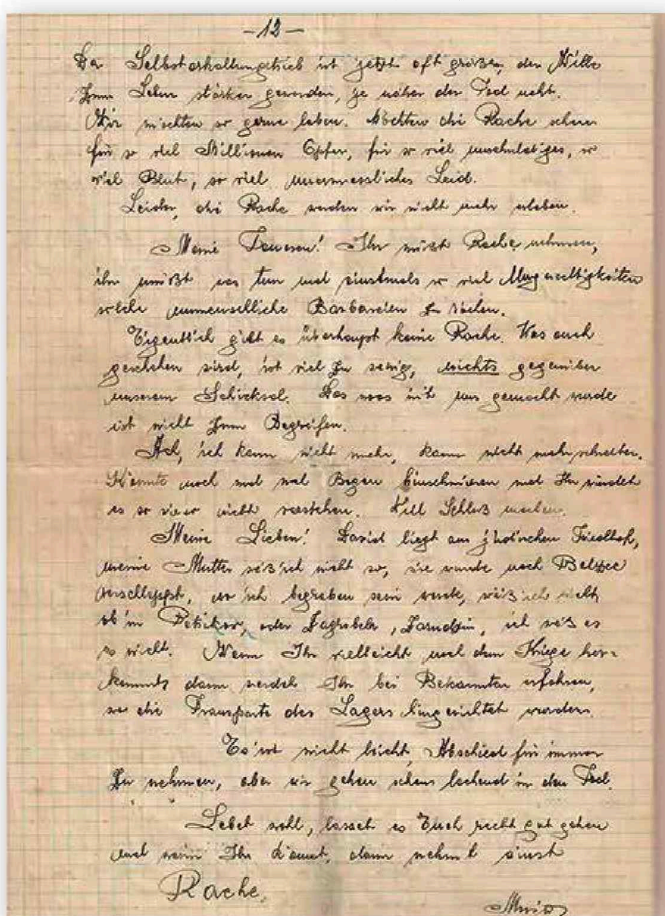 -12-
Der Selbsterhaltungstrieb ist jetzt oft größer, der Wille
zum Leben stärker geworden, je näher der Tod
Wir möchten so gerne leben. Möchten die Rache sehen
für so viel Millionen Opfer, für so viel unschuldiges, so
viel Blut, so viel unermessliches Leid.
Leider, die Rache werden wir nicht mehr erleben.
Meine Teueren! Ihr müßt Rache nehmen,
ihr müßt was tun und einstmals so viel
solche unmenschliche Barbareien zu rächen.
Eigentlich gibt es überhaupt keine Rache. Was auch
geschehen wird, ist viel zu wenig, nichts gegenüber
unserem Schicksal. Das was mit uns gemacht wurde
ist nicht zum Begreifen.
Ach, ich kann nicht mehr, kann nicht mehr schreiben.
Könnte noch und Bogen und Ihr würdet
es so wie so nicht verstehen. Will Schluß machen.
Meine Lieben! liegt am jüdischen Friedhof,
meine Mutter weiß ich nicht wo, sie wurde nach Belzec
verschleppt, wo ich begraben sein werde, weiß ich nicht,
ob in oder , ich weiß es
nicht. Wenn Ihr vielleicht nach dem Kriege her-
kommt, dann werdet Ihr bei Bekannten erfahren,
wo die Transporte des Lagers hingerichtet wurden.
Es ist nicht leicht, Abschied für immer
zu nehmen, aber wir gehen schon lachend in den Tod.
Lebet wohl, lasset es Euch recht gut gehen
und wenn Ihr könnt, dann nehmt einst
Rache.